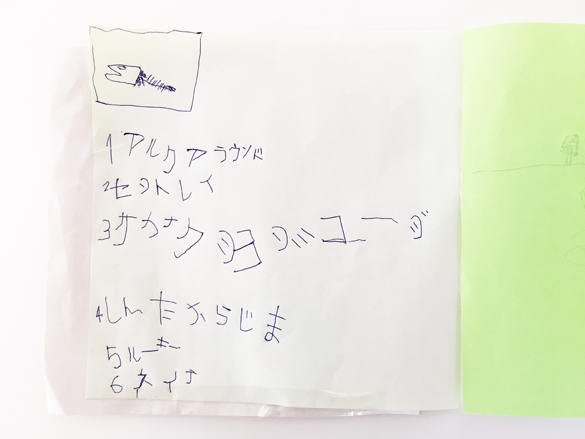 1アルクアラウンド
2セントレイ
3サカナクションミュージ
4しんたからじま
5ルーキー
6ネイナ